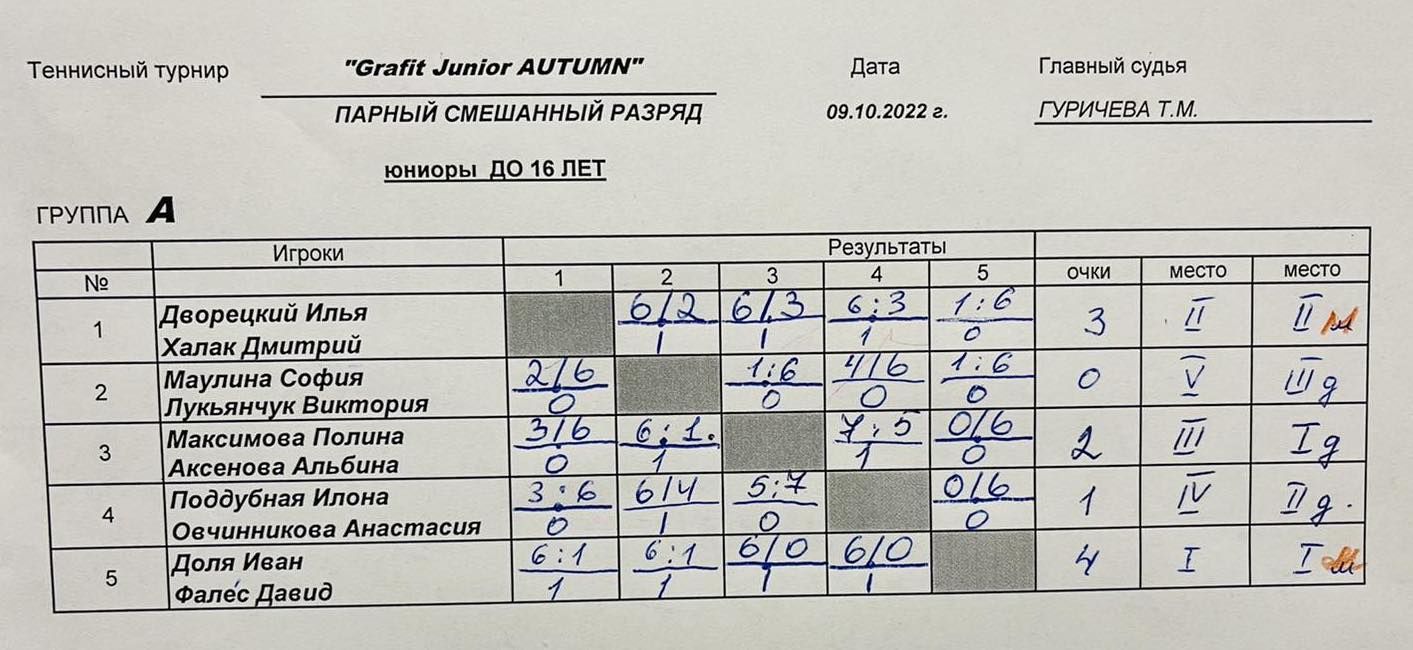 Теннисный турнир "Grafit Junior AUTUMN" Дата Главный судья
ПАРНЫЙ СМЕШАННЫЙ РАЗРЯД 09.10.2022 г. ГУРИЧЕВА Т.М.
юниоры ДО 16 ЛЕТ
ГРУППА А
Игроки Результаты
№ 1 2 3 4 5 очки место место
1 Дворецкий Илья 6/2 6/3 6:3 1:6 3 II II м
Халак Дмитрий 1 1 1 0
2 Маулина София 2/6 1:6 4/6 1:6 0 V III д
Лукьянчук Виктория 0 0 0 0
3 Максимова Полина 3/6 6:1. 7:5 0/6 2 III I д
Аксенова Альбина 0 1 1 0
4 Поддубная Илона 3:6 6/4 5:7 0/6 1 IV II д.
Овчинникова Анастасия 0 1 0 0
5 Доля Иван 6:1 6:1 6/0 6/0 4 I I м
Фалес Давид 1 1 1 1